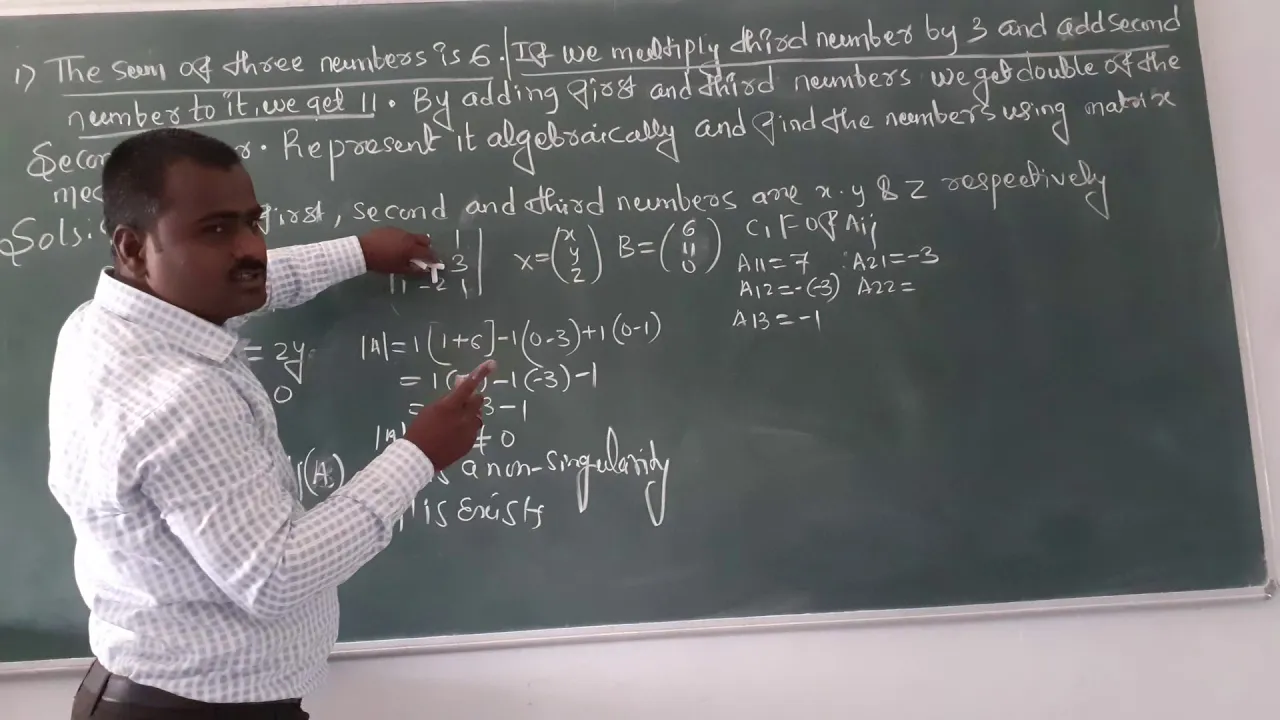 1) The sum of three numbers is 6. If we multiply third number by 3 and add second
number to it, we get 11. By adding first and third numbers we get double of the
r. Represent it algebraically and find the numbers using matrix
first, second and third numbers are x. y & z respectively
1
3
1 -2 1
x = (x y z) B = (6 11 0)
C,F of Aij
A11 = 7 A21 = -3
A12 = -(-3) A22 =
A13 = -1
= 2y
0
|A| = 1[1+6]-1(0-3)+1(0-1)
= 1( )-1(-3)-1
= 3-1
|A| ≠ 0
a non-singularity
is exists